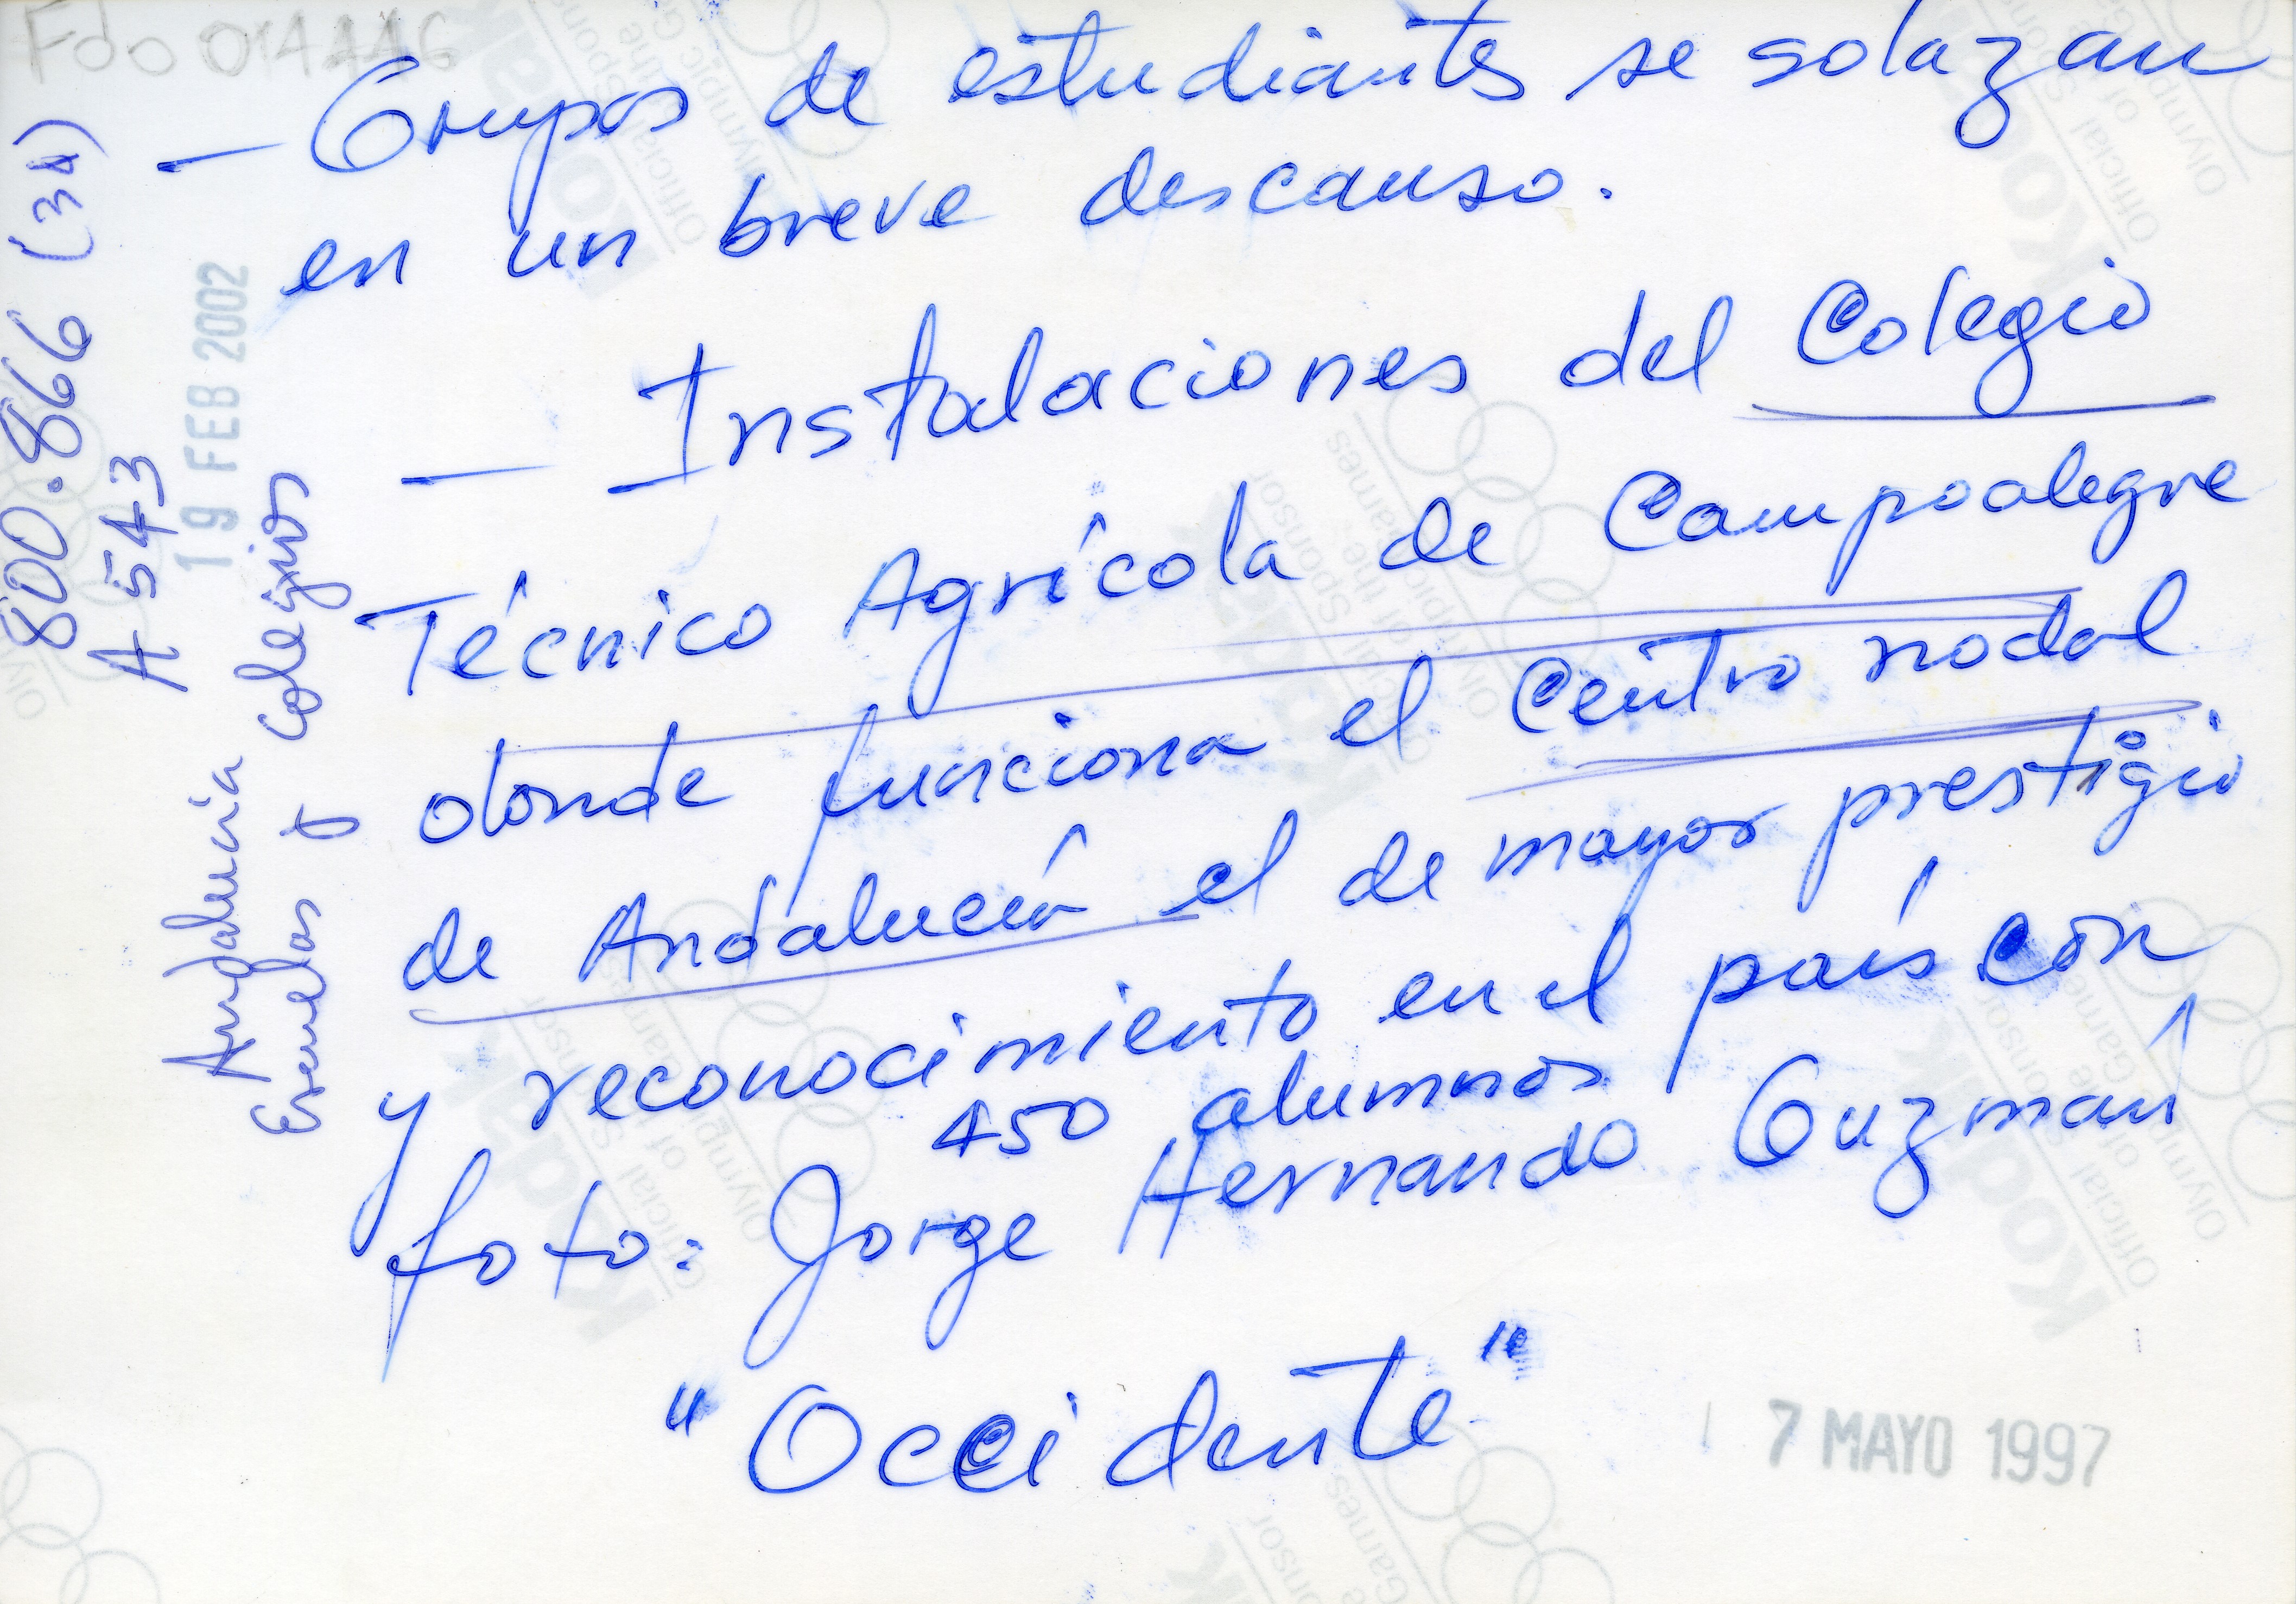 Fdo 014446
— Grupos de estudiantes se solazan
en un breve descanso.
— Instalaciones del Colegio
Técnico Agrícola de Campoalegre
donde funciona el Centro nodal
de Andalucía el de mayor prestigio
y reconocimiento en el país con
450 alumnos
foto: Jorge Hernando Guzmán
"Occidente"
7 MAYO 1997
800.866 (34)
A 543
19 FEB 2002
Andalucia
Escuelas y colegios
Kodak
Official Sponsor
of the
Olympic Games